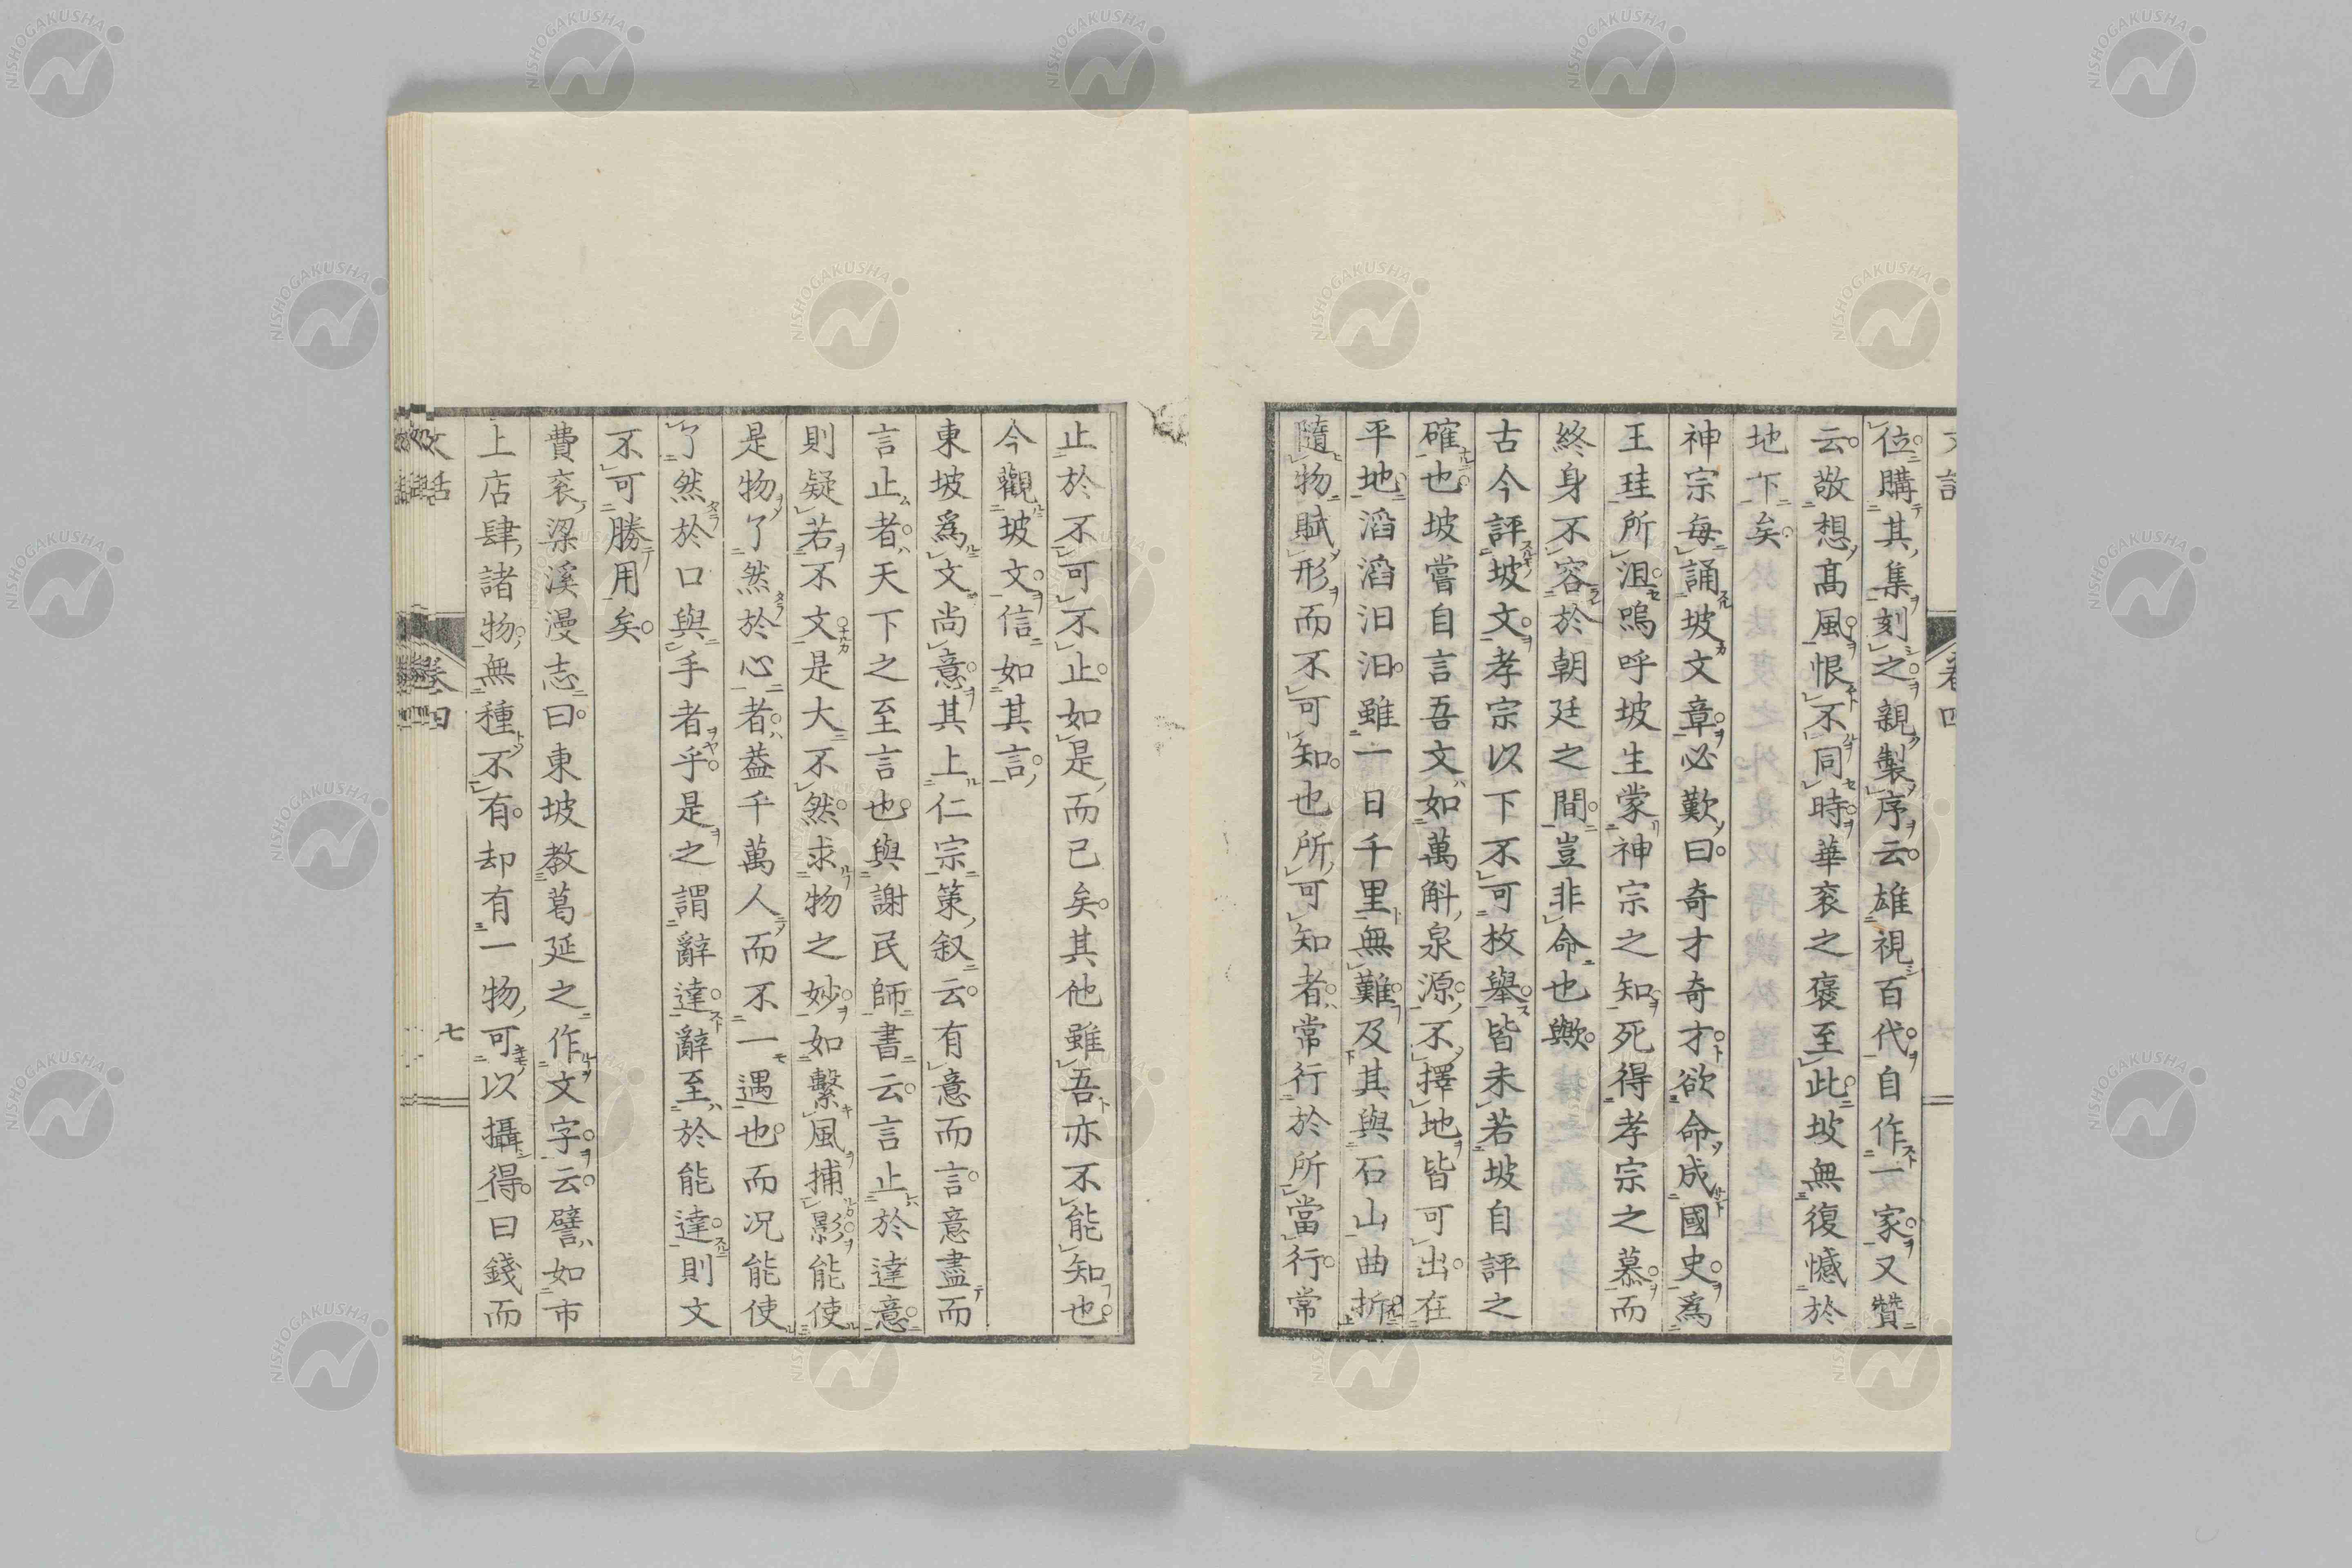 位購其集刻之親製序云雄視百代自作一家又贊
云敬想高風恨不同時華衮之褒至此坡無復憾於
地下矣
神宗每誦坡文章必歎曰奇才奇才欲命成國史爲
王珪所沮嗚呼坡生蒙神宗之知死得孝宗之慕而
終身不容於朝廷之間豈非命也歟
古今評坡文孝宗以下不可枚舉皆未若坡自評之
確也坡嘗自言吾文如萬斛泉源不擇地皆可出在
平地滔滔汩汩雖一日千里無難及其與石山曲折
隨物賦形而不可知也所可知者常行於所當行常
止於不可不止如是而已矣其他雖吾亦不能知也
今觀坡文信如其言
東坡爲文尚意其上仁宗策叙云有意而言意盡而
言止者天下之至言也與謝民師書云言止於達意
則疑若不文是大不然求物之妙如繫風捕影能使
是物了然於心者葢千萬人而不一遇也而況能使
了然於口與手者乎是之謂辭達辭至於能達則文
不可勝用矣
費衮梁溪漫志曰東坡教葛延之作文字云譬如市
上店肆諸物無種不有却有一物可以攝得曰錢而
文話
卷四
七
NISHOGAKUSHA